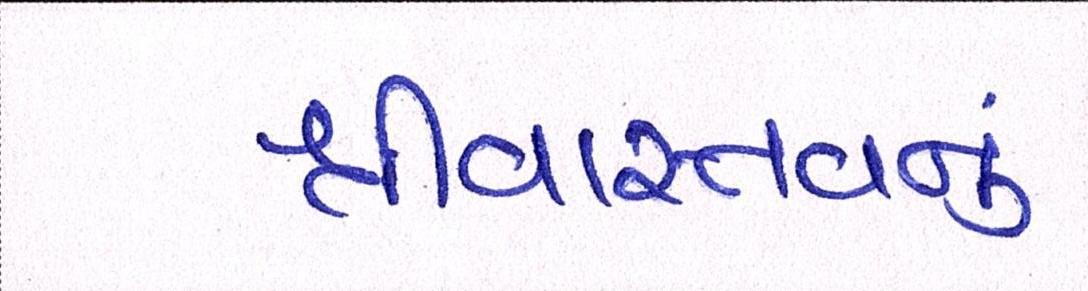 શ્રીવાસ્તવનું